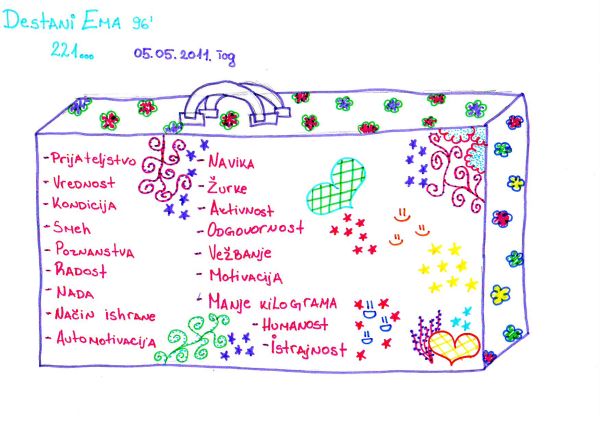 Destani Ema 96'
221...
05.05.2011. Iog
- Prijateljstvo
- Vrednost
- Kondicija
- Smeh
- Poznanstva
- Radost
- Nada
- Način ishrane
- Automotivacija
- Navika
- Žurke
- Aktivnost
- Odgovornost
- Vežbanje
- Motivacija
- Manje kilograma
- Humanost
- Istrajnost